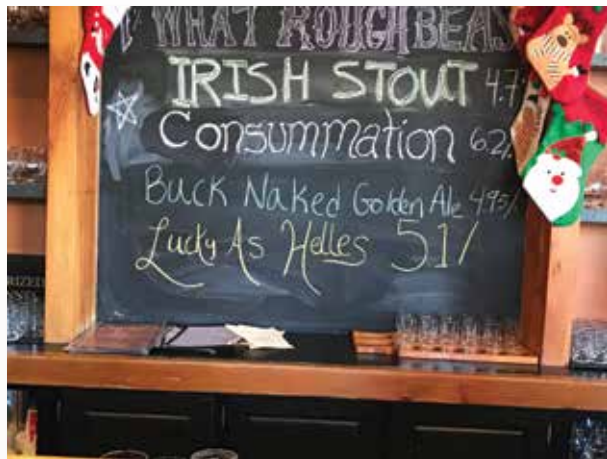 WHAT ROUGH BEAS
IRISH STOUT 4.7
Consummation 6.2%
Buck Naked Golden Ale 4.95%
Lucky As Helles 5.1%
RIZE